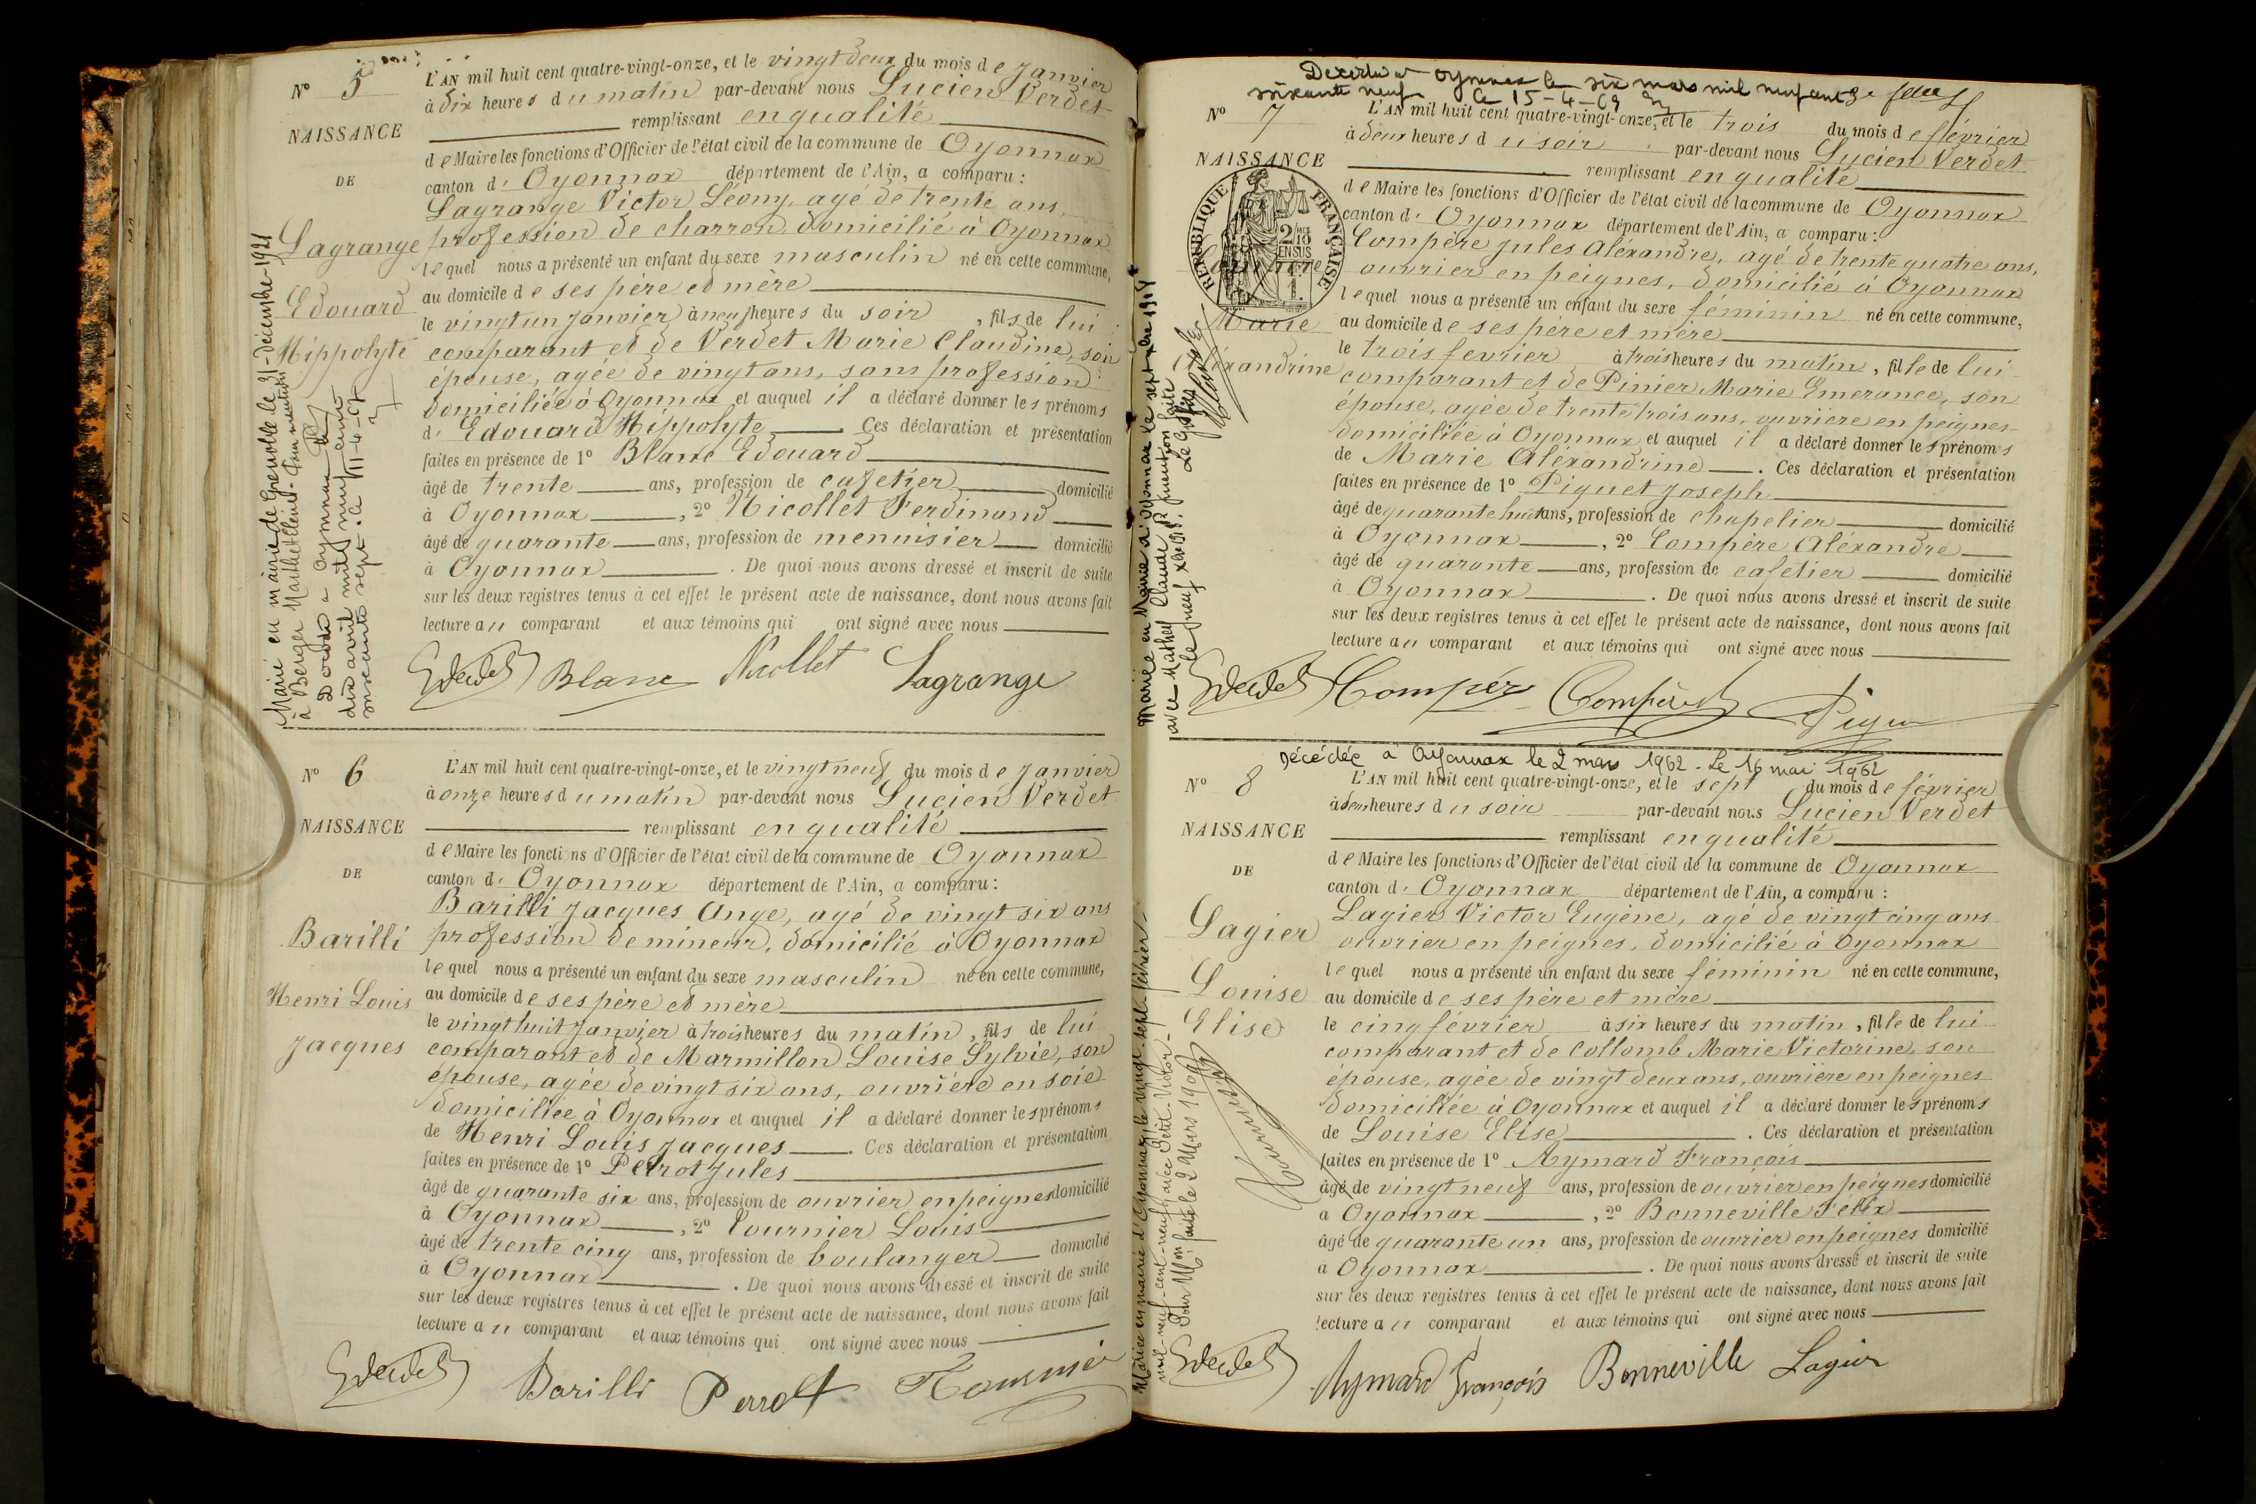 N° 5
L'AN mil huit cent quatre-vingt-onze, et le vingt deux du mois de Janvier
à dix heures du matin par-devant nous Lucien Verdet
NAISSANCE
remplissant en qualité
de Maire les fonctions d'Officier de l'état civil de la commune de Oyonnax
DE
canton d' Oyonnax département de l'Ain, a comparu :
Lagrange Victor Léony, agé de trente ans,
Lagrange
profession de charron domicilié à Oyonnax
lequel nous a présenté un enfant du sexe masculin né en cette commune,
Edouard
au domicile de ses père et mère
le vingt un Janvier à neuf heures du soir, fils de lui
Hippolyte
comparant et de Verdet Marie Claudine, son
épouse, agée de vingt ans, sans profession
domiciliée à Oyonnax et auquel il a déclaré donner les prénoms
d' Edouard Hippolyte. Ces déclaration et présentation
faites en présence de 1° Blanc Edouard
âgé de trente ans, profession de cafetier domicilié
à Oyonnax, 2° Nicollet Ferdinand
âgé de quarante ans, profession de menuisier domicilié
à Oyonnax. De quoi nous avons dressé et inscrit de suite
sur les deux registres tenus à cet effet le présent acte de naissance, dont nous avons fait
lecture au comparant et aux témoins qui ont signé avec nous
Marié en mairie de Grenoble le 31 décembre 1921
à Berger
Décédé à Oyonnax le
dix avril mil neuf cent
soixante sept. le 11-4-67
Verdet Blanc Nicollet Lagrange
N° 6
L'AN mil huit cent quatre-vingt-onze, et le vingt neuf du mois de Janvier
à onze heures du matin par-devant nous Lucien Verdet
NAISSANCE
remplissant en qualité
de Maire les fonctions d'Officier de l'état civil de la commune de Oyonnax
DE
canton d' Oyonnax département de l'Ain, a comparu :
Barilli Jacques Ange, agé de vingt six ans
Barilli
profession de mineur, domicilié à Oyonnax
lequel nous a présenté un enfant du sexe masculin né en cette commune,
Henri Louis
au domicile de ses père et mère
le vingt huit Janvier à trois heures du matin, fils de lui
Jacques
comparant et de Marmillon Louise Sylvie, son
épouse, agée de vingt six ans, ouvrière en soie
domiciliée à Oyonnax et auquel il a déclaré donner les prénoms
de Henri Louis Jacques. Ces déclaration et présentation
faites en présence de 1° Perrot Jules
âgé de quarante six ans, profession de ouvrier en peignes domicilié
à Oyonnax, 2° Tournier Louis
âgé de trente cinq ans, profession de boulanger domicilié
à Oyonnax. De quoi nous avons dressé et inscrit de suite
sur les deux registres tenus à cet effet le présent acte de naissance, dont nous avons fait
lecture au comparant et aux témoins qui ont signé avec nous
Verdet Barilli Perrot Tournier
Décédée à Oyonnax le six mars mil neuf cent
soixante neuf le 15-4-69
N° 7
L'AN mil huit cent quatre-vingt-onze, et le trois du mois de février
à deux heures du soir par-devant nous Lucien Verdet
NAISSANCE
remplissant en qualité
RÉPUBLIQUE FRANÇAISE
de Maire les fonctions d'Officier de l'état civil de la commune de Oyonnax
canton d' Oyonnax département de l'Ain, a comparu :
Compère Jules Aléxandre, agé de trente quatre ans,
ouvrier en peignes, domicilié à Oyonnax
lequel nous a présenté un enfant du sexe féminin né en cette commune,
Marie
au domicile de ses père et mère
le trois fevrier à trois heures du matin, fille de lui
Aléxandrine
comparant et de Pinier Marie Emerance, son
épouse, agée de trente trois ans, ouvriere en peignes
domiciliée à Oyonnax et auquel il a déclaré donner les prénoms
de Marie Aléxandrine. Ces déclaration et présentation
faites en présence de 1° Piguet Joseph
âgé de quarante huit ans, profession de chapelier domicilié
à Oyonnax, 2° Compère Aléxandre
âgé de quarante ans, profession de cafetier domicilié
à Oyonnax. De quoi nous avons dressé et inscrit de suite
sur les deux registres tenus à cet effet le présent acte de naissance, dont nous avons fait
lecture au comparant et aux témoins qui ont signé avec nous
Mariée en Mairie d'Oyonnax le sept xbre
avec Mathey Claude
Verdet Compère Compère Piguet
Décédée à Oyonnax le 2 mars 1962 - Le 16 mai 1962
N° 8
L'AN mil huit cent quatre-vingt-onze, et le sept du mois de février
à deux heures du soir par-devant nous Lucien Verdet
NAISSANCE
remplissant en qualité
de Maire les fonctions d'Officier de l'état civil de la commune de Oyonnax
DE
canton d' Oyonnax département de l'Ain, a comparu :
Lagier Victor Eugène, agé de vingt cinq ans
Lagier
ouvrier en peignes, domicilié à Oyonnax
lequel nous a présenté un enfant du sexe féminin né en cette commune,
Louise
au domicile de ses père et mère
Elise
le cinq février à six heures du matin, fille de lui
comparant et de Collomb Marie Victorine, son
épouse, agée de vingt deux ans, ouvriere en peignes
domiciliée à Oyonnax et auquel il a déclaré donner les prénoms
de Louise Elise. Ces déclaration et présentation
faites en présence de 1° Aymard François
âgé de vingt neuf ans, profession de ouvrier en peignes domicilié
à Oyonnax, 2° Bonneville Félix
âgé de quarante un ans, profession de ouvrier en peignes domicilié
à Oyonnax. De quoi nous avons dressé et inscrit de suite
sur les deux registres tenus à cet effet le présent acte de naissance, dont nous avons fait
lecture au comparant et aux témoins qui ont signé avec nous
Mariée en mairie d'Oyonnax, le vingt-sept février
mil-neuf-cent-neuf avec Petit Victor -
Pour Mon faite le 2 Mars 1909
Verdet Aymard François Bonneville Lagier